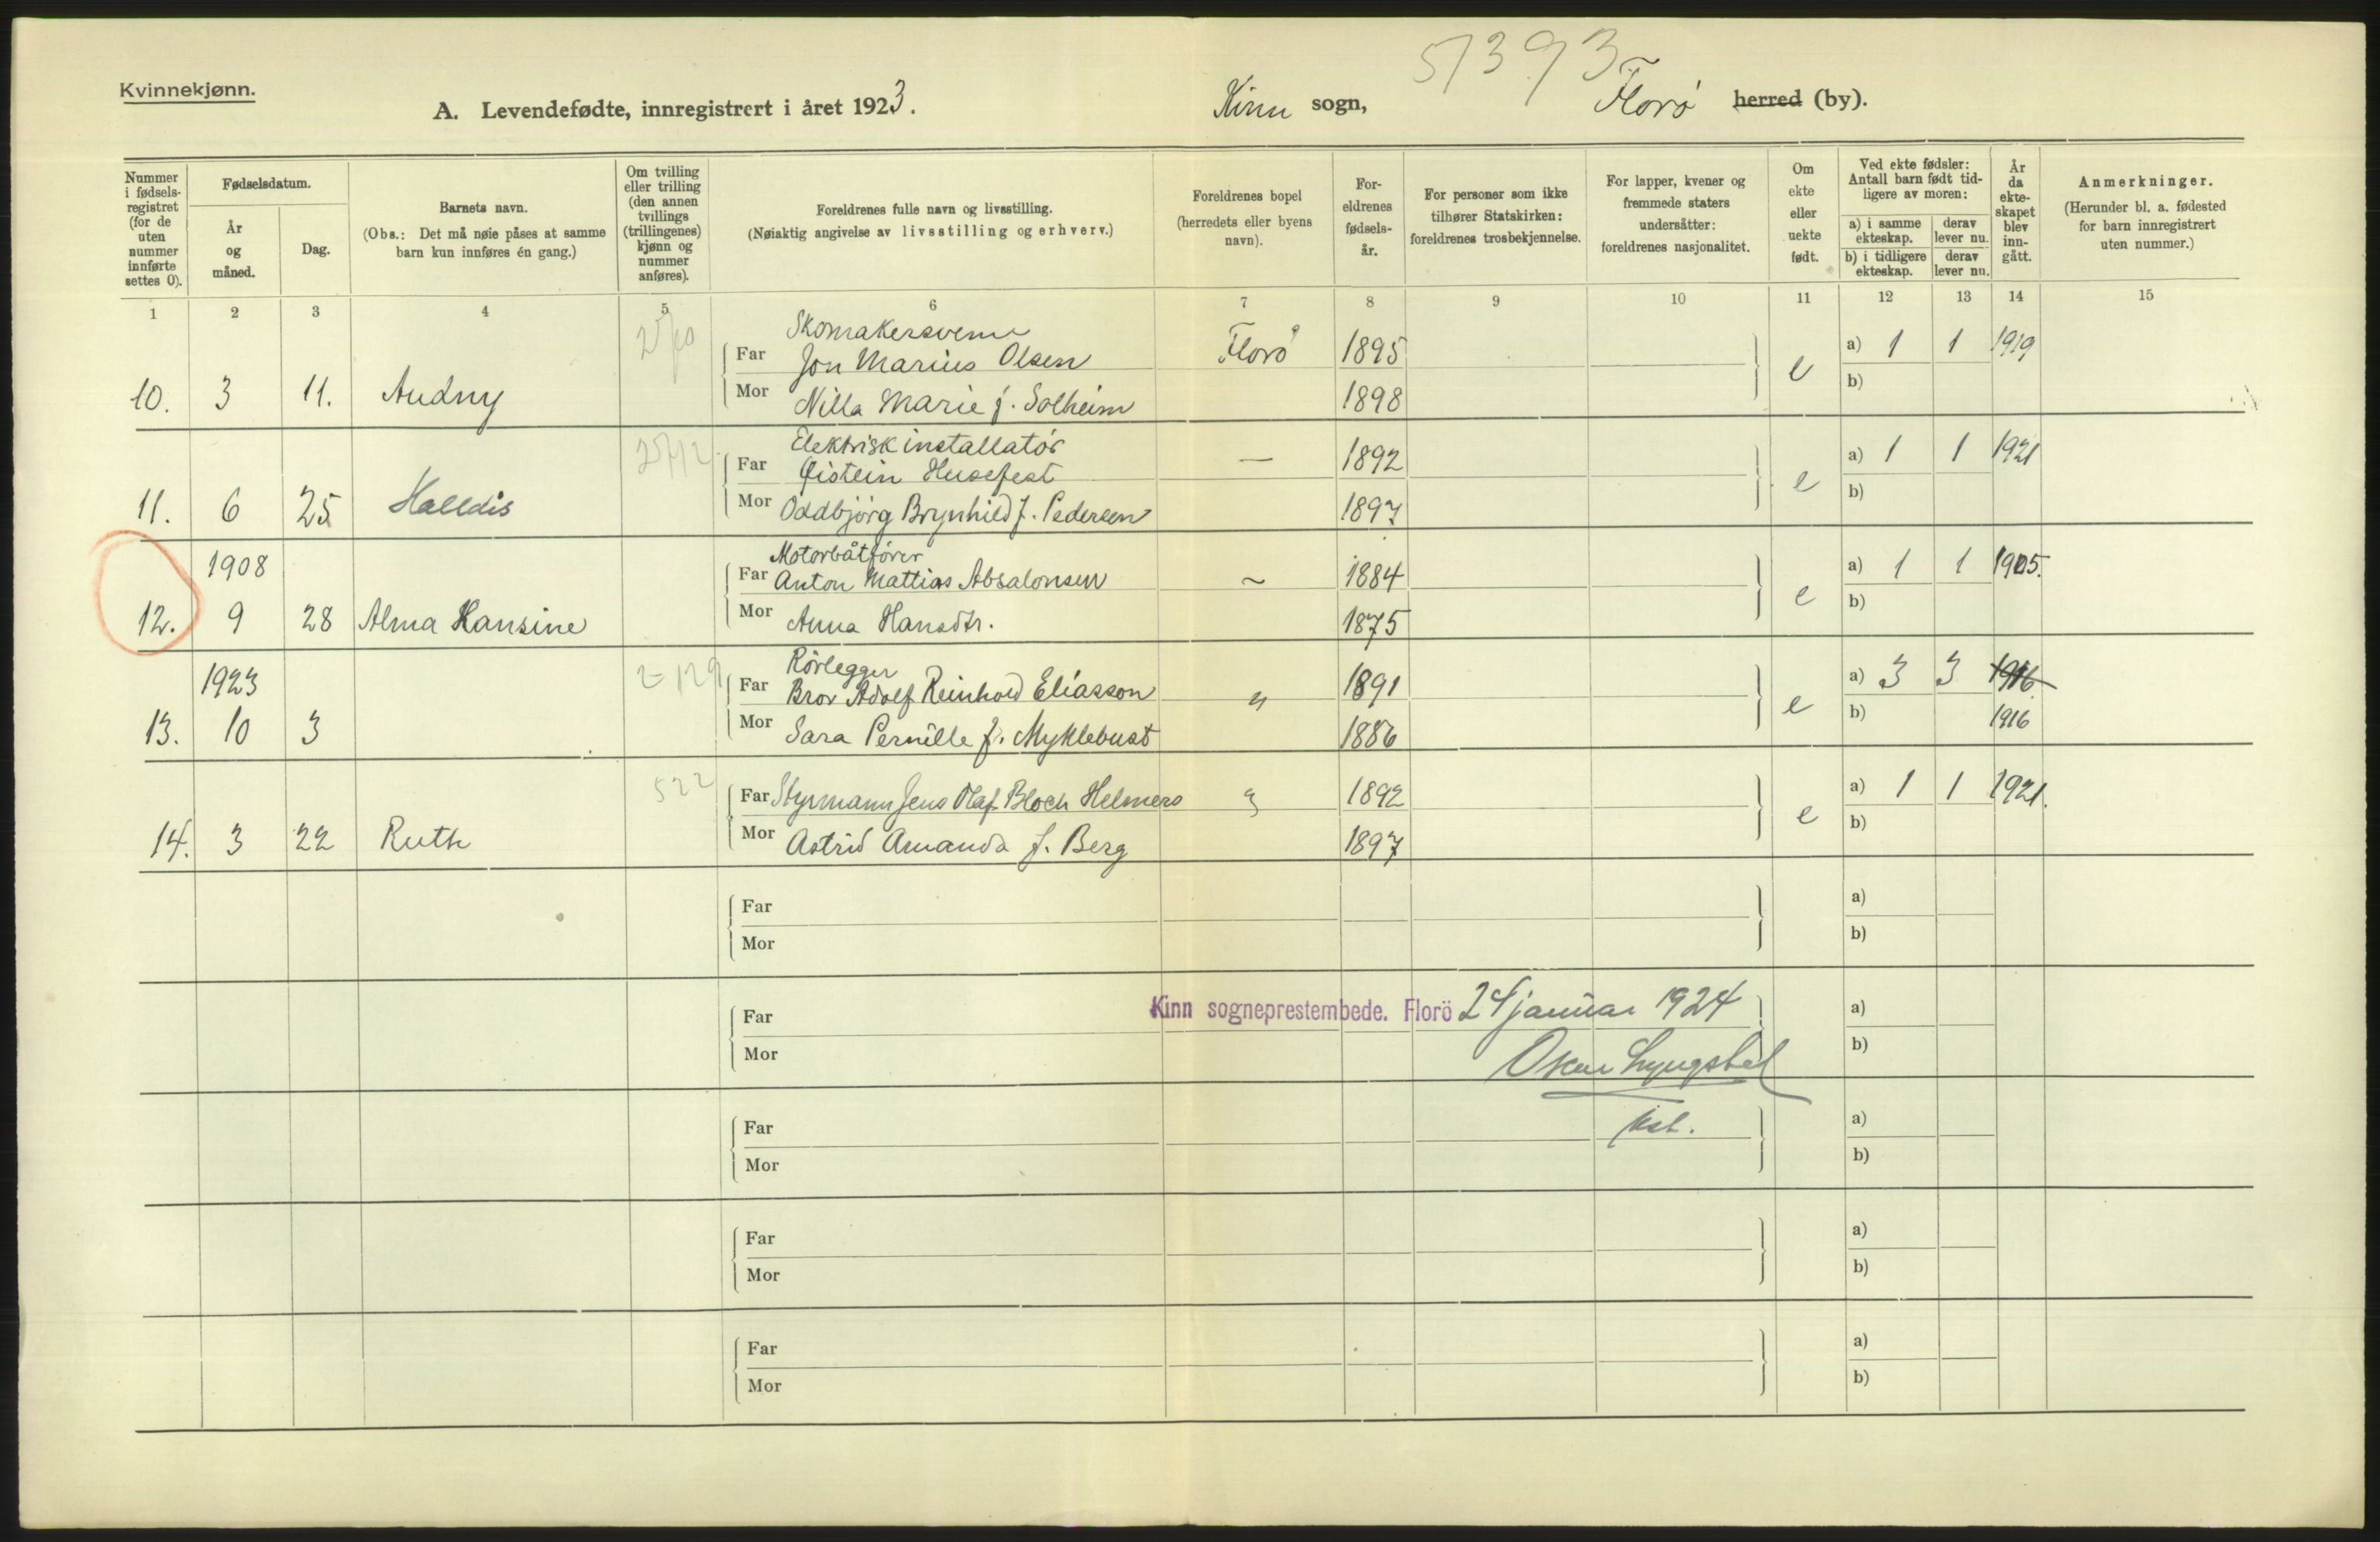 Kvinnekjønn.
5393
A. Levendefødte, innregistrert i året 1923.
Kinn sogn, Florø herred (by).
Nummer i fødsels-registret (for de uten nummer innførte settes 0).
Fødselsdatum.
År og måned.
Dag.
Barnets navn.
(Obs.: Det må nøie påses at samme barn kun innføres én gang.)
Om tvilling eller trilling (den annen tvillings (trillingenes) kjønn og nummer anføres).
Foreldrenes fulle navn og livsstilling.
(Nøiaktig angivelse av livsstilling og erhverv.)
Foreldrenes bopel (herredets eller byens navn).
For-eldrenes fødsels-år.
For personer som ikke tilhører Statskirken: foreldrenes trosbekjennelse.
For lapper, kvener og fremmede staters undersåtter: foreldrenes nasjonalitet.
Om ekte eller uekte født.
Ved ekte fødsler: Antall barn født tid-ligere av moren:
a) i samme ekteskap.
derav lever nu.
b) i tidligere ekteskap.
derav lever nu.
År da ekte-skapet blev inn-gått.
Anmerkninger.
(Herunder bl. a. fødested for barn innregistrert uten nummer.)
1 2 3 4 5 6 7 8 9 10 11 12 13 14 15
Skomakersvenn
Far Jon Marius Olsen Florø 1895 a) 1 1 1919
10. 3 11. Audny Mor Nilla Marie f. Solheim 1898 e b)
Elektrisk installatör
Far Øistein Husefest — 1892 a) 1 1 1921
11. 6 25 Halldis Mor Oddbjörg Brynhild f. Pedersen 1897 e b)
1908 Motorbåtförer
Far Anton Mattias Absalonsen ~ 1884 a) 1 1 1905.
12. 9 28 Alma Hansine Mor Anna Hansdtr. 1875 e b)
1923 Rörlegger
Far Bror Adolf Reinhold Eliasson " 1891 a) 3 3 1916
13. 10 3 Mor Sara Pernille f. Myklebust 1886 e b) 1916
522
Far Styrmann Jens Olaf Bloch Helmers " 1892 a) 1 1 1921.
14. 3 22 Ruth Mor Astrid Amanda f. Berg 1897 e b)
Far a)
Mor b)
Kinn sogneprestembede. Florö 24 januar 1924
Far a)
Mor b)
Oskar Lyngstad
Far kst. a)
Mor b)
Far a)
Mor b)
Far a)
Mor b)